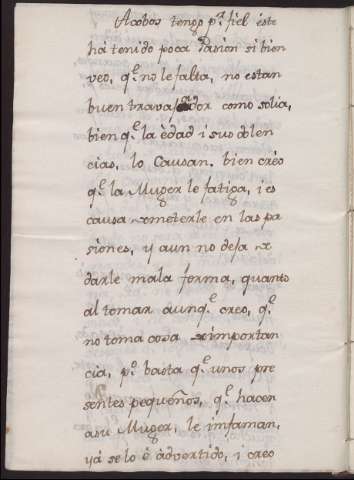 Acobos tengo p.r fiel éste
há tenido poca Pasion si bien
veo, q.e no le falta, no es tan
buen travajador como solia,
bien q.e la èdad i sus dolen
cias, lo Causan. bien creo
q.e la Muger le fatiga, i es
causa meterle en las pa
siones, y aun no desa
darle mala forma, quanto
al tomar aunq.e creo, q.e
no toma cosa importan
cia, p.o basta q.e unos pre
sentes pequeños, q.e hacen
a su Muger, le infaman,
yá se lo è àdvertido, i creo